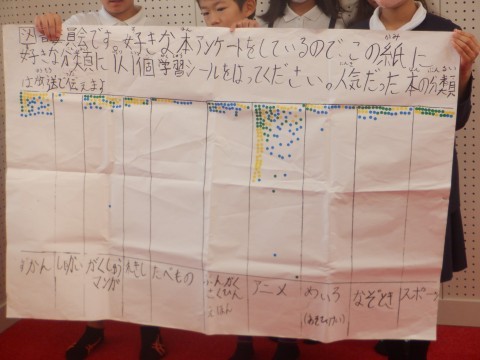 図書委員会です。好きな本アンケートをしているので、この紙に
好きな分類に1人1個学習シールをはってください。人気だった本の分類
は放送で伝えます
ずかん
しゃかい
がくしゅう
マンガ
れきし
たべもの
ぶんがく
さくひん
えほん
アニメ
めいろ
なぞとき
スポーツ